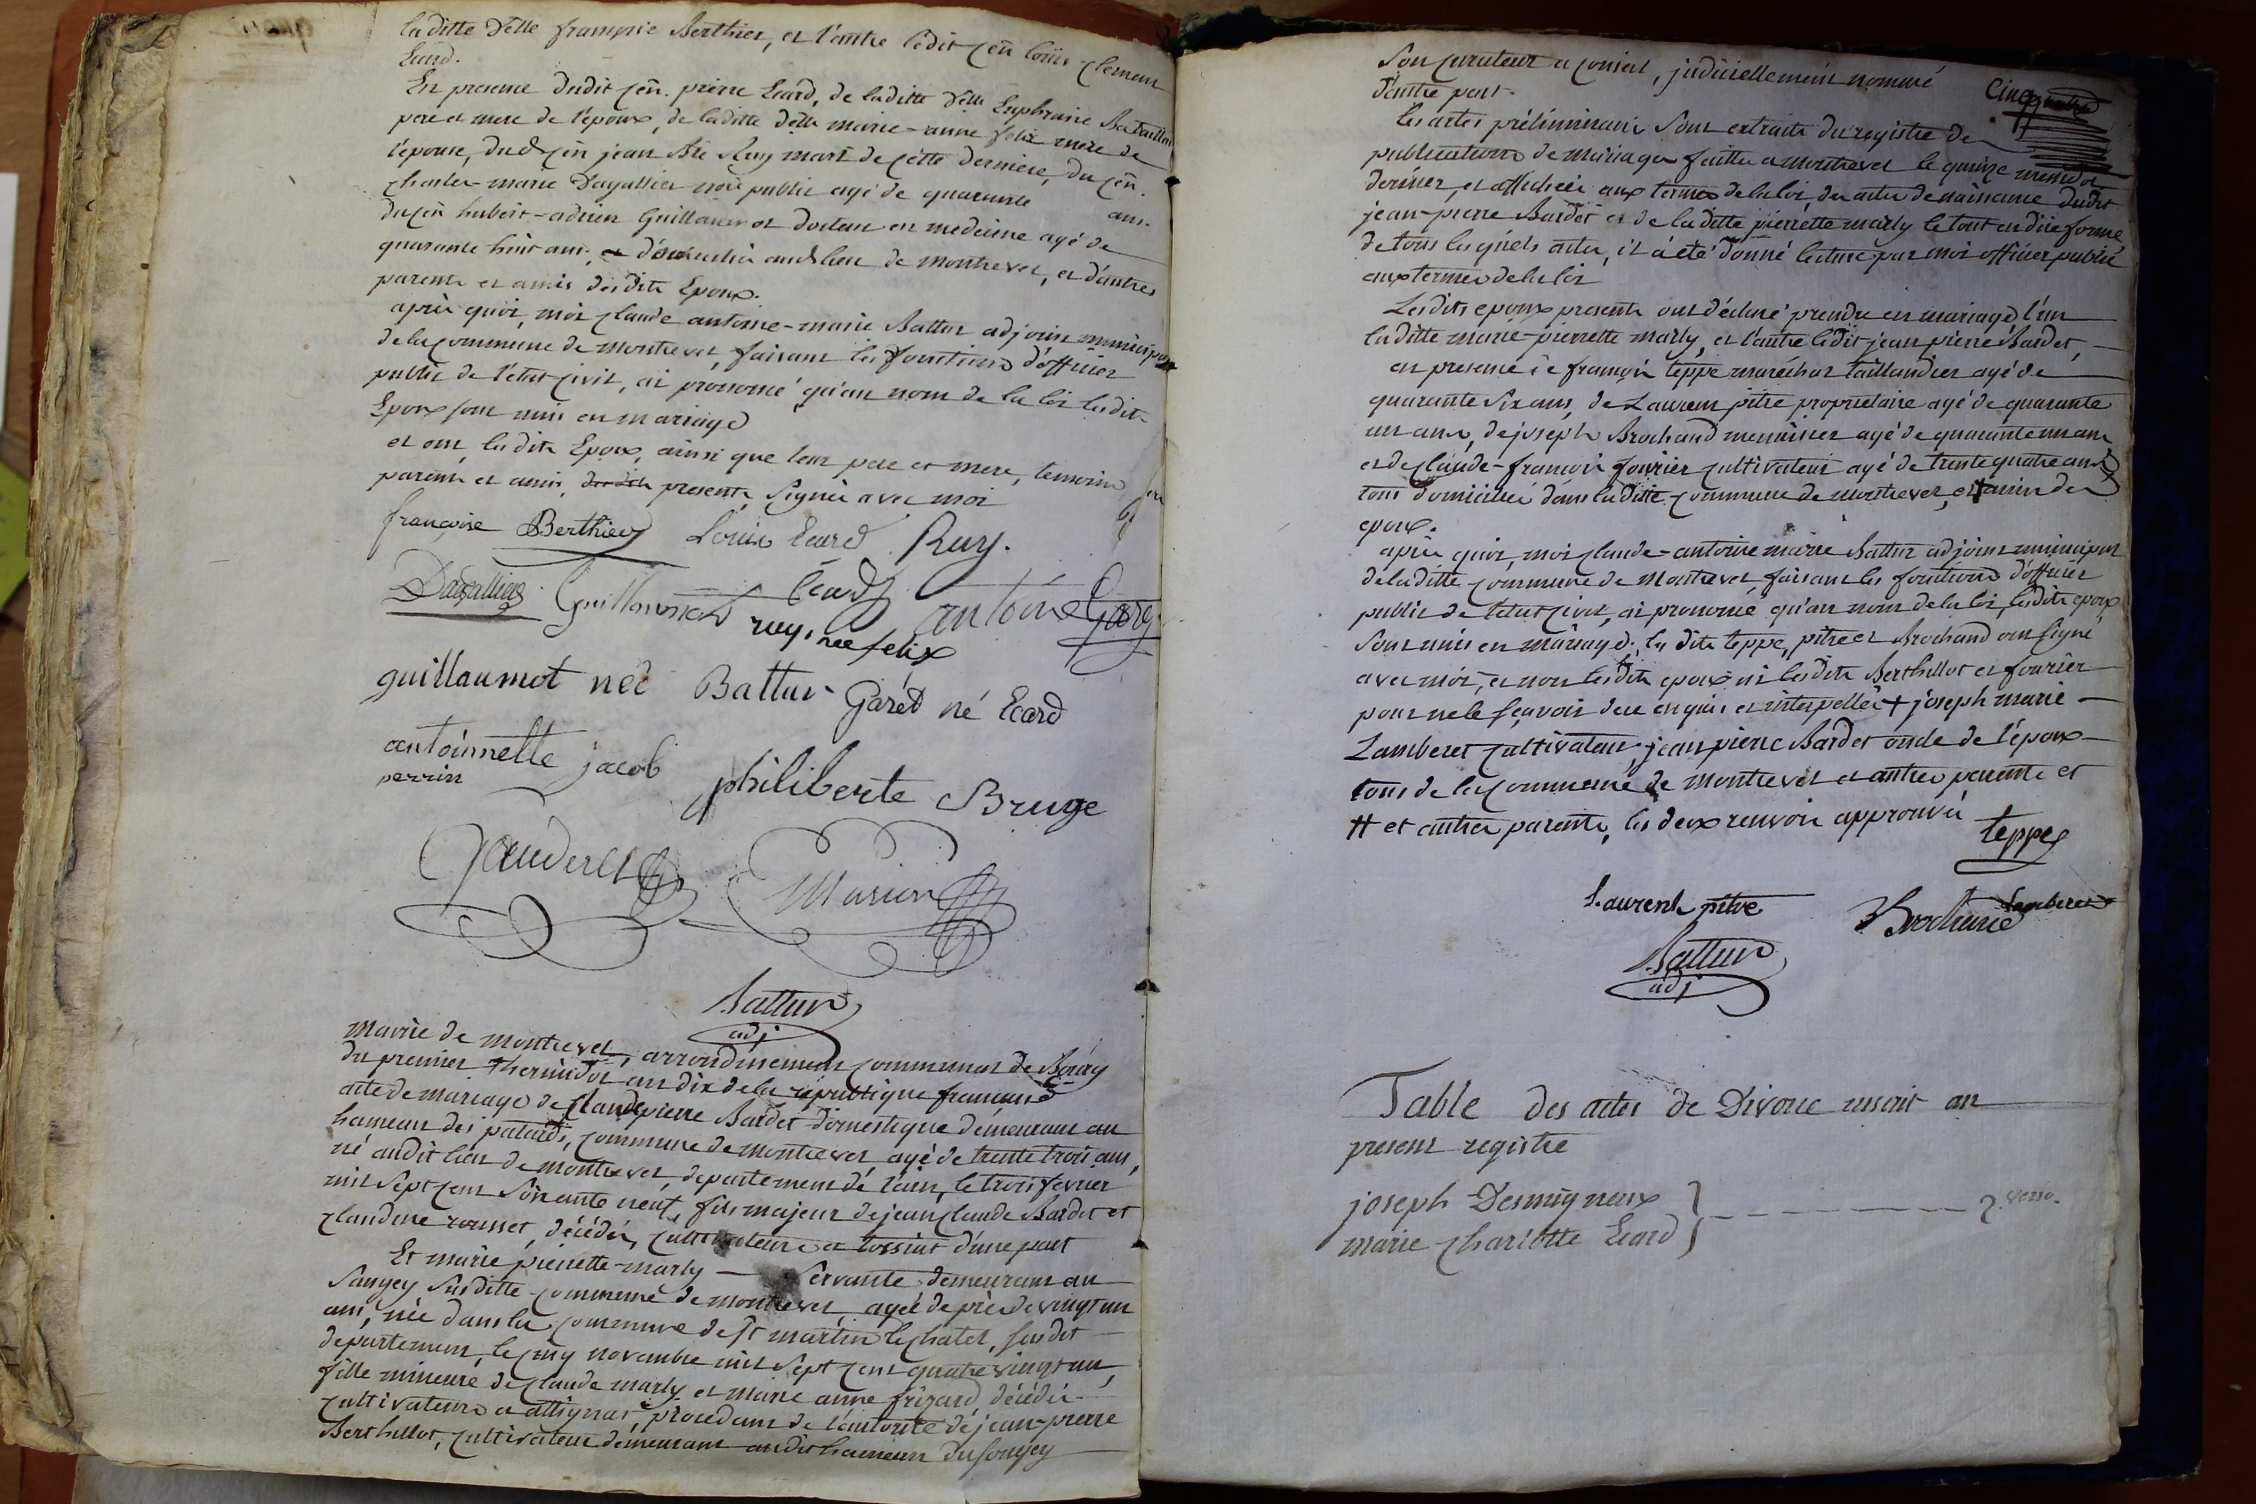 laditte d'elle françoise Berthier, et l'autre ledit cen louis clement
Ecard.
En presence dudit cen. pierre Ecard, de laditte d'elle Euphrasie Bataillon
pere et mere de l'epoux, de laditte d'elle marie-anne felix mere de
l'epouse, dud. cen jean Bte Ruy mari de cette derniere, du cen.
charles-marie Dagallier nore public agé de quarante ans.
du cen hubert-adrien Guillaumot docteur en medecine agé de
quarante huit ans, domiciliés aud. lieu de montrevel, et d'autres
parents et amis desdits Epoux.
après quoi, moi claude antoine-marie Battur adjoint municipal
de la commune de montrevel, faisant les fonctions d'officier
public de l'etat civil, ai prononcé qu'au nom de la loi lesdits
Epoux sont unis en mariage
et ont, lesdits Epoux, ainsi que leur pere et mere, temoins
parents et amis, presents, signés avec moi
françoise Berthier Louis Ecard Ruy.
Dagallier Guillaumot Ecard antoine Garey
ruy, née felix
guillaumot neé Battur Garéd né Ecard
antoinnette jacob philiberte Bruge
perrin
Gauderet Marion
Battur
adj
Mairie de montrevel, arrondissement communal de Bourg
du premier thermidor an dix de la republique française
acte de mariage de Claude pierre Bardet domestique demeurant au
hameau des patards, commune de montrevel agé de trente trois ans,
né audit lieu de montrevel, departement de l'ain, le trois fevrier
mil sept cent soixante neuf, fils majeur de jean claude Bardet et
claudine rousset, décédés, cultivateurs a cossiat d'une part
Et marie pierrette marly servante demeurant au
Saugey susditte commune de montrevel, agée de près de vingt un
ans, née dans la commune de st martin le chatel, susdit
departement, le cinq novembre mil sept cent quatre vingt un,
fille mineure de claude marly et marie anne frigard, décédés
cultivateurs a attignat, procedant de l'autorité de jean-pierre
Berthillot, cultivateur demeurant audit hameau du Saugey
Cinq
Son curateur et conseil, judiciellement nommé
d'autre part.
les actes préliminaires sont extraits du registre des
publications de mariages faittes a montrevel le quinze messidor
dernier, et affichées aux termes de la loi, des actes de naissance dudit
jean-pierre Bardet et de laditte pierrette marly le tout en düe forme,
de tous lesquels actes, il a été donné lecture par moi officier public
aux termes de la loi
Lesdits epoux presents ont déclaré prendre en mariage l'un
laditte marie-pierrette marly, et l'autre ledit jean pierre Bardet,
en presence de françois teppe maréchal taillandier agé de
quarante six ans, de Laurent pitre proprietaire agé de quarante
un ans, de joseph Brochand menuisier agé de quarante un ans
et de claude-françois fourier cultivateur agé de trente quatre ans
tous domiciliés dans laditte commune de montrevel, et amis des
epoux.
après quoi, moi claude-antoine marie Battur adjoint municipal
de laditte commune de montrevel faisant les fonctions d'officier
public de l'etat civil, ai prononcé qu'au nom de la loi, lesdits epoux
sont unis en mariage, les dits teppe, pitre et Brochand ont signé
avec moi, et non lesdits epoux ni lesdits Berthillot et fourier
pour ne le sçavoir de ce enquis et interpellés + joseph marie
Lamberet cultivateur, jean pierre Bardet oncle de l'époux
tous de la commune de montrevel et autres parents et
# et autres parents, les deux renvois approuvés
teppe
Laurent pitre Brochand Lamberet
Battur
adj
Table des actes de Divorce inscrit au
present registre
joseph Desmigneux
marie charlotte Ecard } 2 verso.